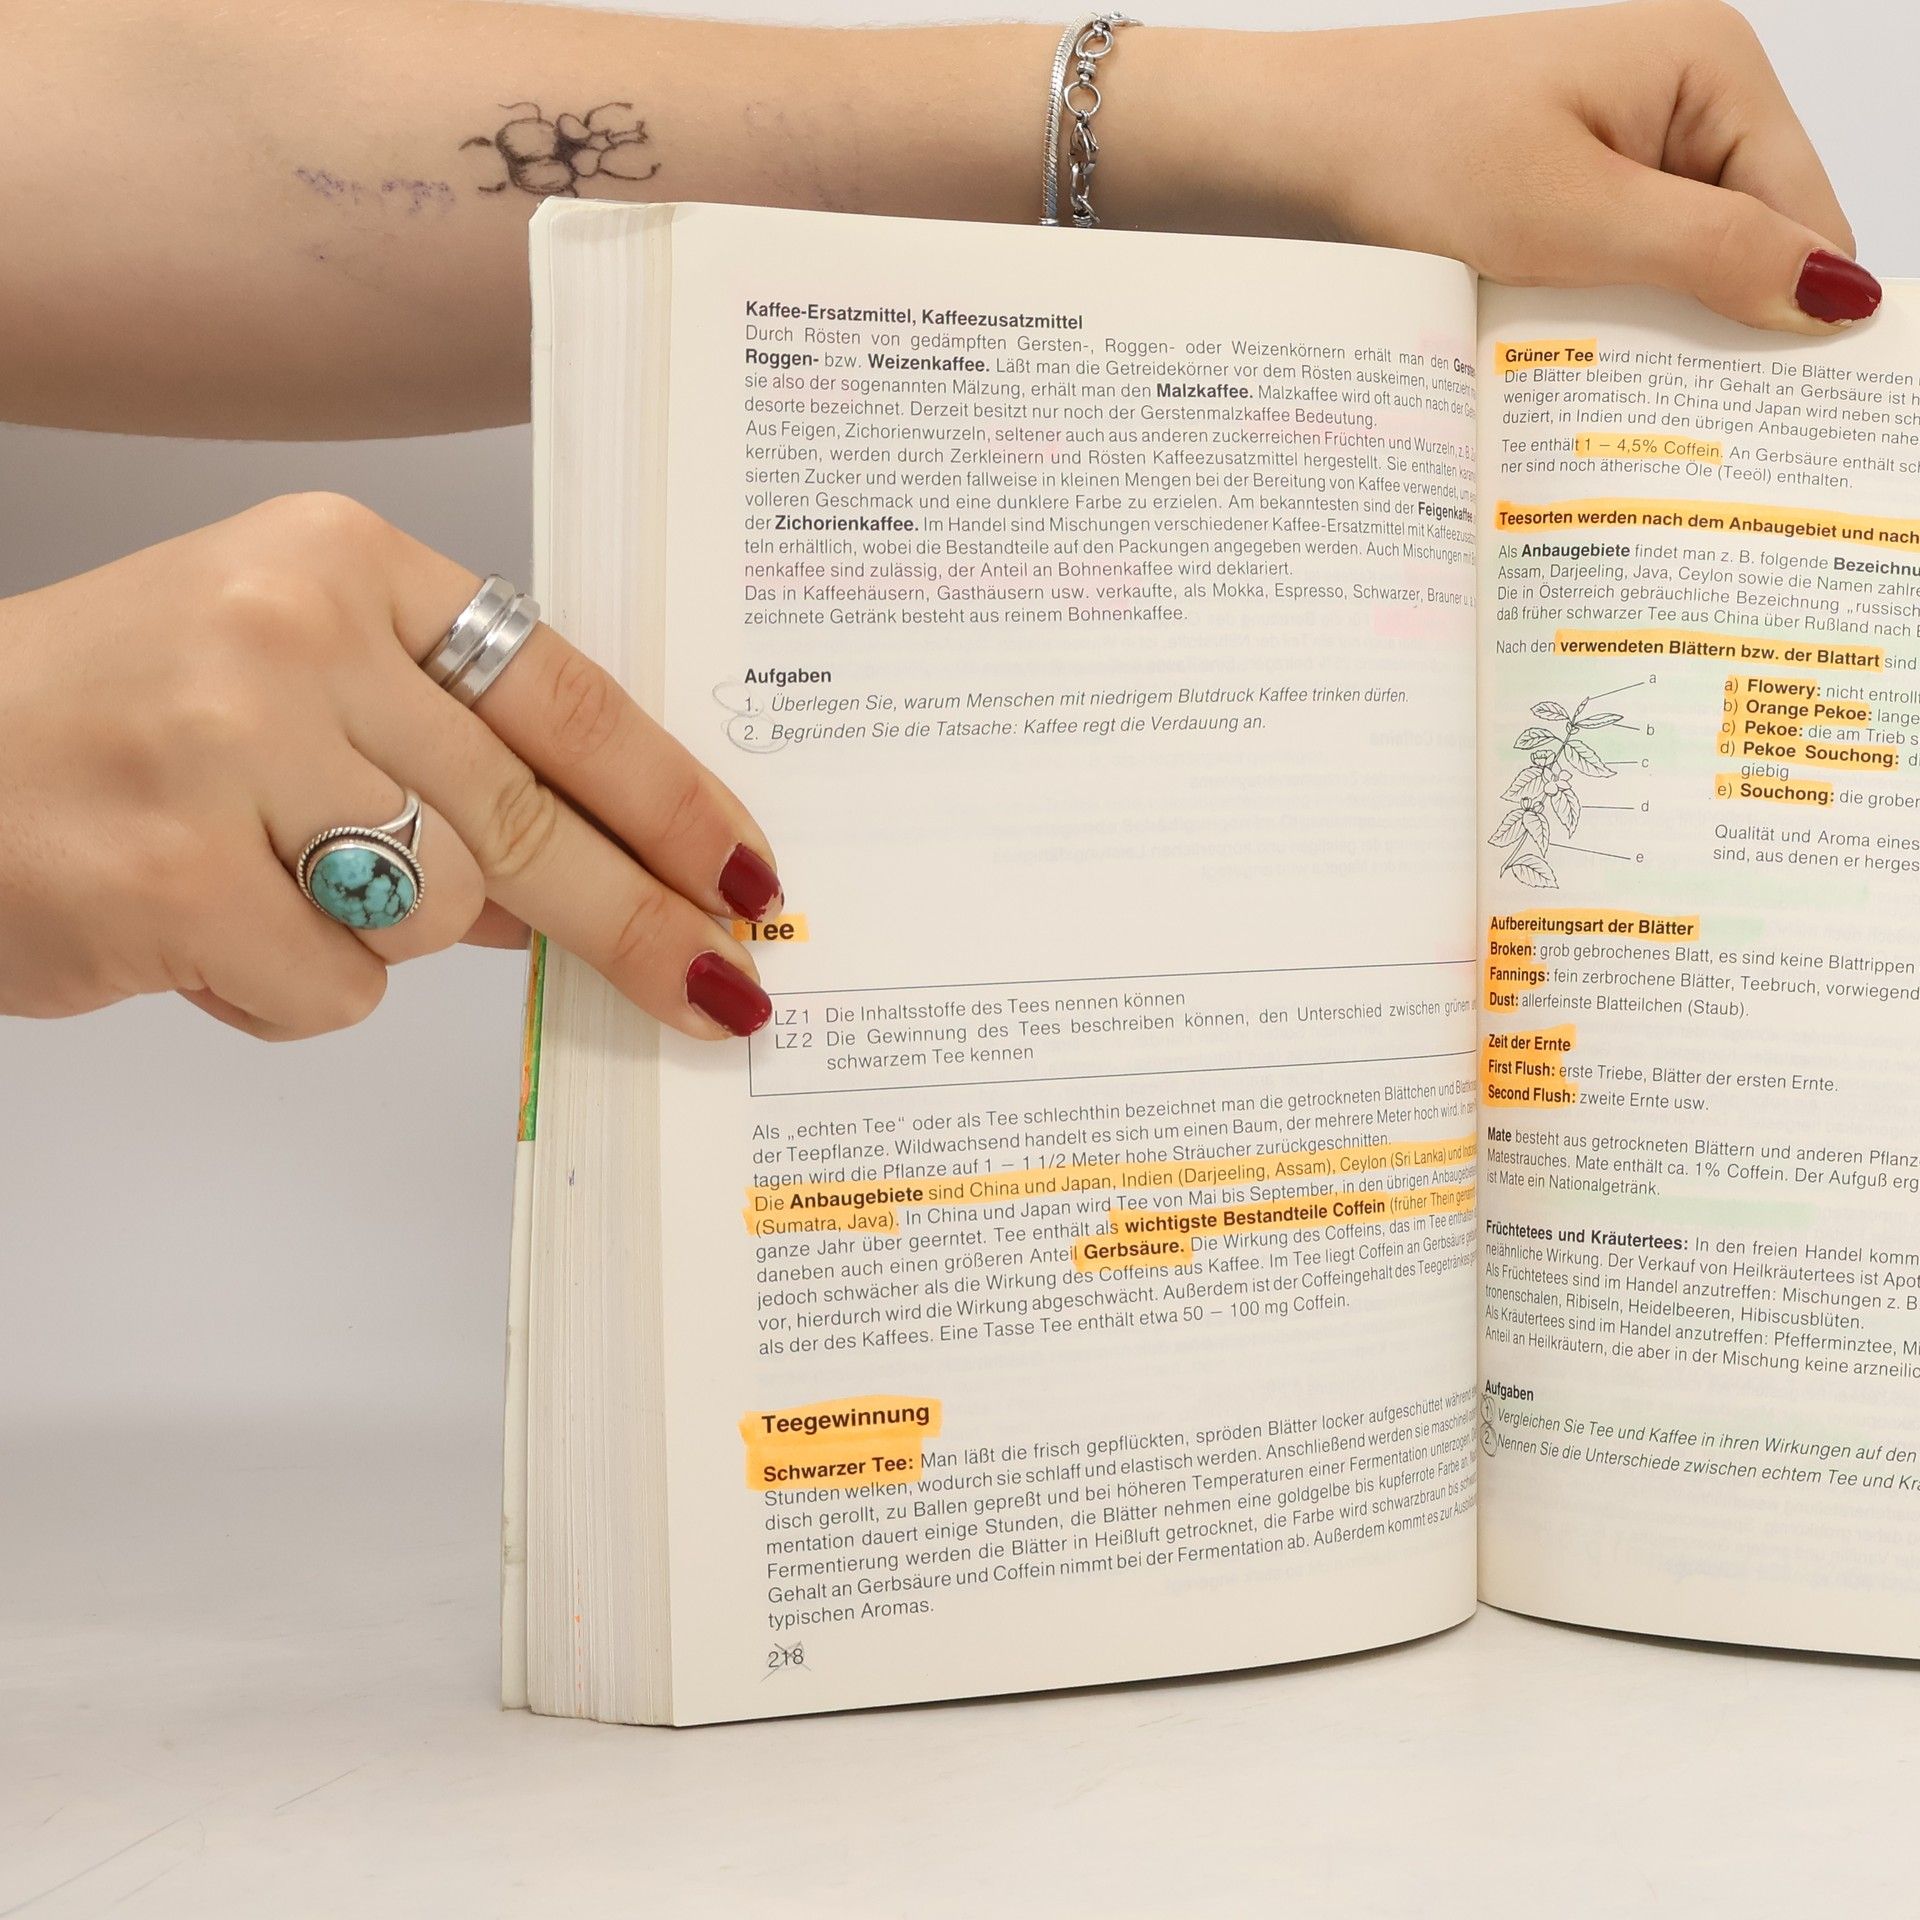 Kaffee-Ersatzmittel, Kaffeezusatzmittel
Durch Rösten von gedämpften Gersten-, Roggen- oder Weizenkörnern erhält man den
Roggen- bzw. Weizenkaffee. Läßt man die Getreidekörner vor dem Rösten auskeimen, unterzieht
sie also der sogenannten Mälzung, erhält man den Malzkaffee. Malzkaffee wird oft auch nach der
desorte bezeichnet. Derzeit besitzt nur noch der Gerstenmalzkaffee Bedeutung.
Aus Feigen, Zichorienwurzeln, seltener auch aus anderen zuckerreichen Früchten und Wurzeln, z. B.
kerrüben, werden durch Zerkleinern und Rösten Kaffeezusatzmittel hergestellt. Sie enthalten
sierten Zucker und werden fallweise in kleinen Mengen bei der Bereitung von Kaffee verwendet, um
volleren Geschmack und eine dunklere Farbe zu erzielen. Am bekanntesten sind der Feigenkaffee
der Zichorienkaffee. Im Handel sind Mischungen verschiedener Kaffee-Ersatzmittel mit
teln erhältlich, wobei die Bestandteile auf den Packungen angegeben werden. Auch Mischungen
nenkaffee sind zulässig, der Anteil an Bohnenkaffee wird deklariert.
Das in Kaffeehäusern, Gasthäusern usw. verkaufte, als Mokka, Espresso, Schwarzer, Brauner
zeichnete Getränk besteht aus reinem Bohnenkaffee.
Aufgaben
1. Überlegen Sie, warum Menschen mit niedrigem Blutdruck Kaffee trinken dürfen.
2. Begründen Sie die Tatsache: Kaffee regt die Verdauung an.
Tee
LZ 1 Die Inhaltsstoffe des Tees nennen können
LZ 2 Die Gewinnung des Tees beschreiben können, den Unterschied zwischen grünem
schwarzem Tee kennen
Als „echten Tee“ oder als Tee schlechthin bezeichnet man die getrockneten Blättchen und
der Teepflanze. Wildwachsend handelt es sich um einen Baum, der mehrere Meter hoch wird. In
tagen wird die Pflanze auf 1 – 1 1/2 Meter hohe Sträucher zurückgeschnitten.
Die Anbaugebiete sind China und Japan, Indien (Darjeeling, Assam), Ceylon (Sri Lanka) und
(Sumatra, Java). In China und Japan wird Tee von Mai bis September, in den übrigen
ganze Jahr über geerntet. Tee enthält als wichtigste Bestandteile Coffein (früher Thein
daneben auch einen größeren Anteil Gerbsäure. Die Wirkung des Coffeins, das im Tee enthalten
jedoch schwächer als die Wirkung des Coffeins aus Kaffee. Im Tee liegt Coffein an Gerbsäure
vor, hierdurch wird die Wirkung abgeschwächt. Außerdem ist der Coffeingehalt des Teegetränkes
als der des Kaffees. Eine Tasse Tee enthält etwa 50 – 100 mg Coffein.
Teegewinnung
Schwarzer Tee: Man läßt die frisch gepflückten, spröden Blätter locker aufgeschüttet während
Stunden welken, wodurch sie schlaff und elastisch werden. Anschließend werden sie maschinell
disch gerollt, zu Ballen gepreßt und bei höheren Temperaturen einer Fermentation unterzogen.
mentation dauert einige Stunden, die Blätter nehmen eine goldgelbe bis kupferrote Farbe an.
Fermentierung werden die Blätter in Heißluft getrocknet, die Farbe wird schwarzbraun bis
Gehalt an Gerbsäure und Coffein nimmt bei der Fermentation ab. Außerdem kommt es zur
typischen Aromas.
218
Grüner Tee wird nicht fermentiert. Die Blätter werden
Die Blätter bleiben grün, ihr Gehalt an Gerbsäure ist
weniger aromatisch. In China und Japan wird neben
duziert, in Indien und den übrigen Anbaugebieten nahe
Tee enthält 1 – 4,5% Coffein. An Gerbsäure enthält
ner sind noch ätherische Öle (Teeöl) enthalten.
Teesorten werden nach dem Anbaugebiet und nach
Als Anbaugebiete findet man z. B. folgende
Assam, Darjeeling, Java, Ceylon sowie die Namen
Die in Österreich gebräuchliche Bezeichnung „russisch
daß früher schwarzer Tee aus China über Rußland nach
Nach den verwendeten Blättern bzw. der Blattart sind
a
b
c
d
e
a) Flowery: nicht
b) Orange Pekoe: lange
c) Pekoe: die am Trieb
d) Pekoe Souchong:
giebig
e) Souchong: die
Qualität und Aroma eines
sind, aus denen er
Aufbereitungsart der Blätter
Broken: grob gebrochenes Blatt, es sind keine Blattrippen
Fannings: fein zerbrochene Blätter, Teebruch, vorwiegend
Dust: allerfeinste Blatteilchen (Staub).
Zeit der Ernte
First Flush: erste Triebe, Blätter der ersten Ernte.
Second Flush: zweite Ernte usw.
Mate besteht aus getrockneten Blättern und anderen
Matestrauches. Mate enthält ca. 1% Coffein. Der Aufguß
ist Mate ein Nationalgetränk.
Früchtetees und Kräutertees: In den freien Handel
neiähnliche Wirkung. Der Verkauf von Heilkräutertees ist
Als Früchtetees sind im Handel anzutreffen: Mischungen z. B.
tronenschalen, Ribiseln, Heidelbeeren, Hibiscusblüten.
Als Kräutertees sind im Handel anzutreffen: Pfefferminztee,
Anteil an Heilkräutern, die aber in der Mischung keine
Aufgaben
1. Vergleichen Sie Tee und Kaffee in ihren Wirkungen auf den
2. Nennen Sie die Unterschiede zwischen echtem Tee und